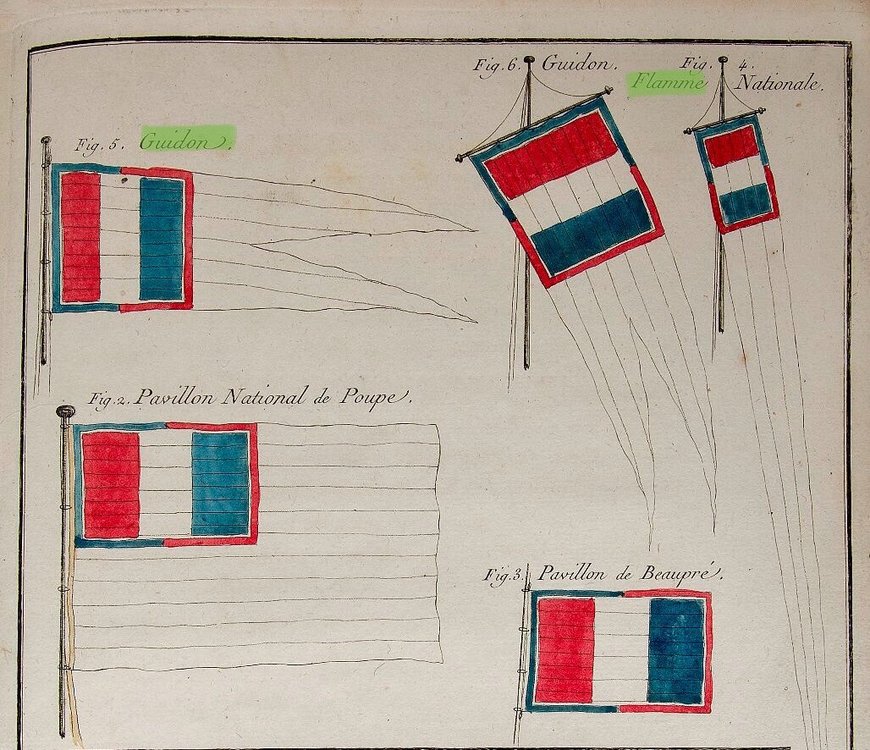 Fig. 6. Guidon.
Fig. 4.
Flamme Nationale.
Fig. 5. Guidon.
Fig. 2. Pavillon National de Poupe.
Fig. 3. Pavillon de Beaupré.